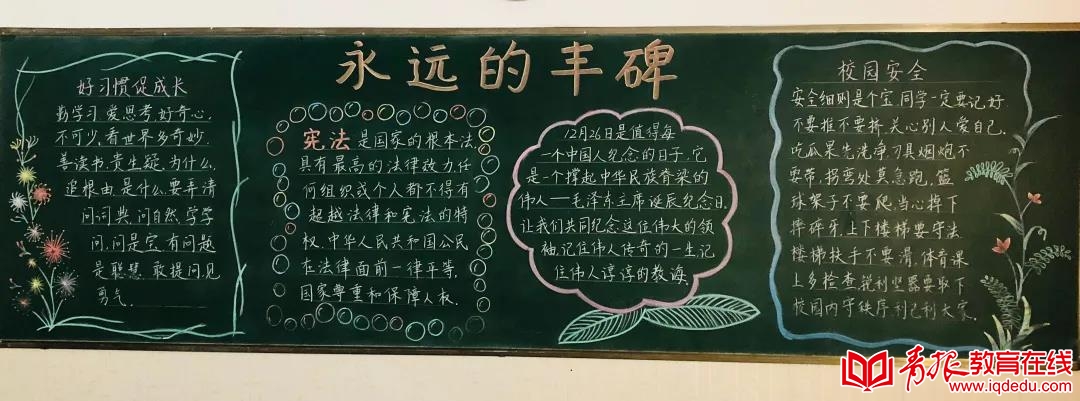 永远的丰碑
好习惯促成长
勤学习爱思考.好奇心.
不可少,看世界多奇妙.
善读书.贵生疑.为什么.
追根由.是什么.要弄清
问词典.问自然.学学
问.问是宝.有问题
是聪慧.敢提问见
勇气.
宪法是国家的根本法,
具有最高的法律效力.任
何组织或个人都不得有
超越法律和宪法的特
权.中华人民共和国公民
在法律面前一律平等.
国家尊重和保障人权.
12月26日是值得每
一个中国人纪念的日子.它
是一个撑起中华民族脊梁的
伟人——毛泽东主席诞辰纪念日.
让我们共同纪念这位伟大的领
袖,记住伟人传奇的一生,记
住伟人谆谆的教诲.
校园安全
安全细则是个宝.同学一定要记好.
不要推不要挤.关心别人爱自己.
吃瓜果先洗净.刀具烟炮不
要带.拐弯处莫急跑.篮
球架子不要爬.当心摔下
摔碎牙.上下楼梯要守法
楼梯扶手不要滑.体育课
上多检查.锐利坚器要取下
校园内守秩序利己利大家.
青报教育在线
www.iqdedu.com